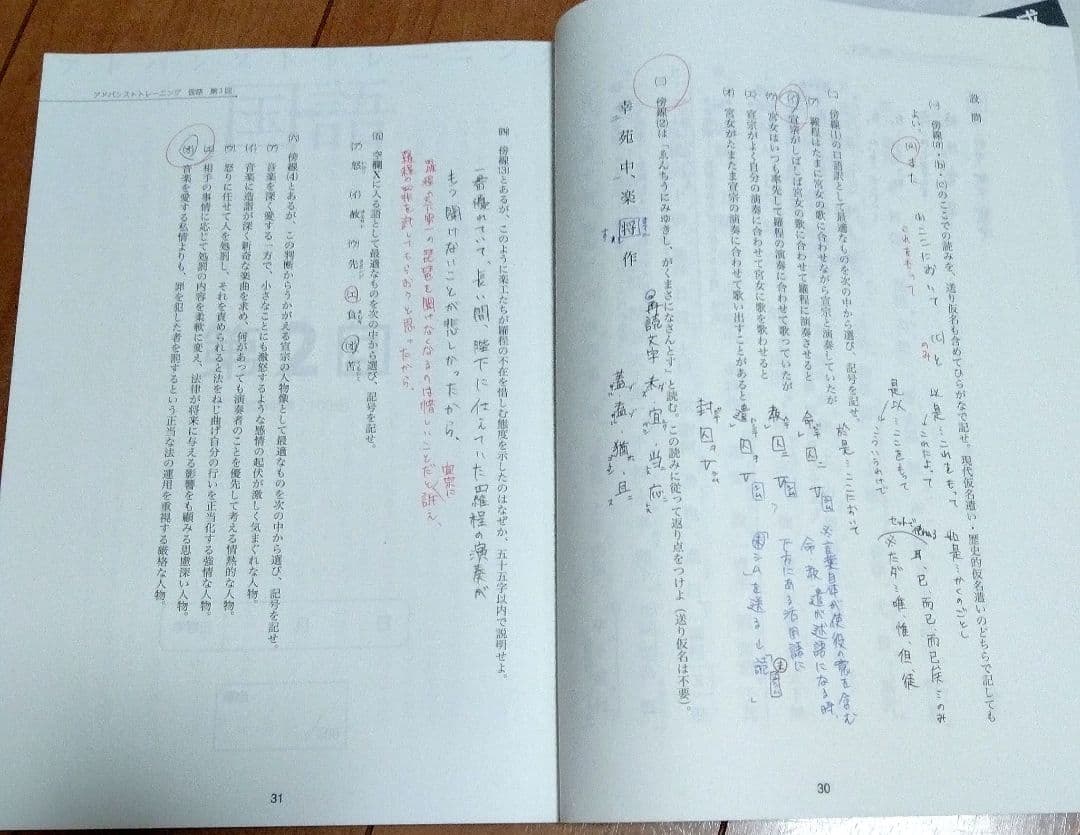 設問
㈠ 傍線(a)・(b)・(c)のここでの読みを、送り仮名も含めてひらがなで記せ。現代仮名遣い・歴史的仮名遣いのどちらで記しても
よい。
(a) また (b) ここにおいて (c) と
これをもって
のみ
以是…これをもって
これによって
是以…ここをもって
こういうわけで
於是…ここにおいて
如是…かくのごとし
耳、已、而已、而已矣…のみ
ただ…唯、惟、但、徒
㈡ 傍線(1)の口語訳として最適なものを次の中から選び、記号を記せ。
(ア) 羅程はたまに宮女の歌に合わせながら宣宗と演奏していたが
(イ) 宣宗がしばしば宮女の歌に合わせて羅程に演奏させると
(ウ) 宮女はいつも率先して羅程の演奏に合わせて歌っていたが
(エ) 宣宗がよく自分の演奏に合わせて宮女に歌を歌わせると
(オ) 宮女がたまたま宣宗の演奏に合わせて歌い出すことがあると
命
教
遣
封
※言葉自体が使役の意を含む
命 教 遣が述語になる時、
下方にある活用語に
シムを送る
㈢ 傍線(2)は「ゑんちうにみゆきし、がくまさになさんとす」と読む。この読みに従って返り点をつけよ（送り仮名は不要）。
幸 苑 中、楽 将 作
再読文字 未 宜 当 応
蓋 盍 猶 且
㈣ 傍線(3)とあるが、このように楽工たちが羅程の不在を惜しむ態度を示したのはなぜか、五十五字以内で説明せよ。
一番優れていて、長い間、陛下に仕えていた羅程の演奏が
もう聞けないことが悲しかったから。
羅程の天下一の琵琶を聞けなくなるのは惜しいことだと宣宗に訴え、
羅程の罪を許してもらおうと思ったから。
㈤ 空欄Xに入る語として最適なものを次の中から選び、記号を記せ。
(ア) 怒 (イ) 赦 (ウ) 先 (エ) 負 (オ) 苦
㈥ 傍線(4)とあるが、この判断からうかがえる宣宗の人物像として最適なものを次の中から選び、記号を記せ。
(ア) 音楽を深く愛する一方で、小さなことにも激怒するような感情の起伏が激しく気まぐれな人物。
(イ) 音楽に造詣が深く新奇な楽曲を求め、何があっても演奏者のことを優先して考える情熱的な人物。
(ウ) 怒りに任せて人を処罰し、それを責められると法をねじ曲げ自分の行いを正当化する強情な人物。
(エ) 相手の事情に応じて処罰の内容を柔軟に変え、法律が将来に与える影響をも顧みる思慮深い人物。
(オ) 音楽を愛する私情よりも、罪を犯した者を罰するという正当な法の運用を重視する厳格な人物。
30
アドバンストトレーニング 国語 第1回
31